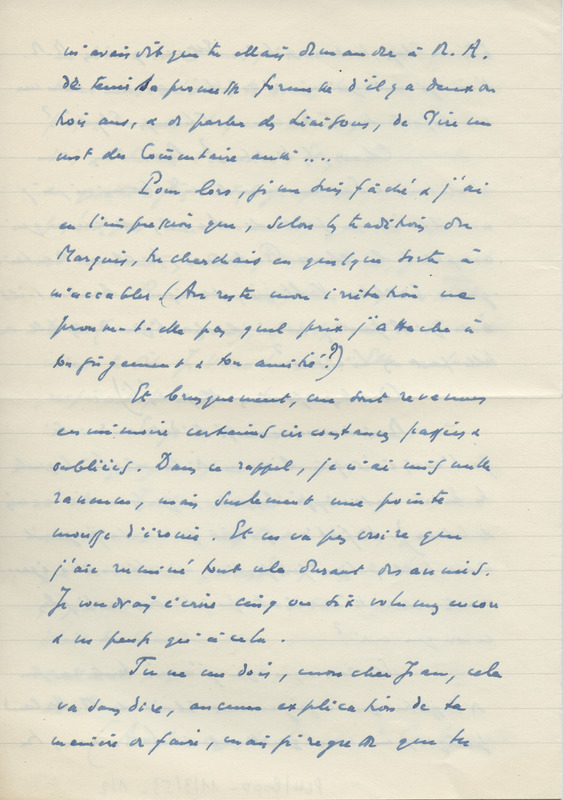 m'avais dit que tu allais demander à R. A.
de tenir sa promesse formulée d'il y a deux ou
trois ans, & de parler des Liaisons, de Vive un
mot du Commentaire aussi ....
Pour lors, je me suis fâché & j'ai
eu l'impression que, selon les traditions du
Marquis, tu cherchais en quelque sorte à
m'accabler (Au reste mon irritation ne
prouve-t-elle pas quel prix j'attache à
ton jugement & ton amitié ?)
Et brusquement, me sont revenues
en mémoire certaines circonstances passées &
oubliées. Dans ce rappel, je n'ai mis nulle
rancœur, mais seulement une pointe
mousse d'ironie. Et ne va pas croire que
j'aie ruminé tout cela durant des années.
Je voudrais écrire cinq ou six volumes encore
& ne pense qu'à cela.
Tu ne me dois, mon cher Jean, cela
va sans dire, aucune explication de ta
manière de faire, mais je regrette que tu